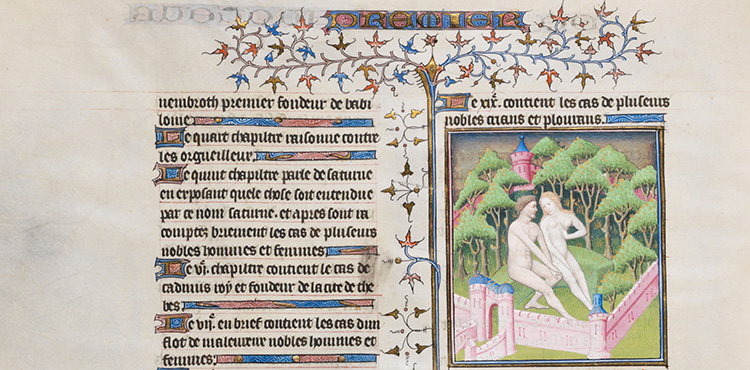 PREMIER
nembroth premier fondeur de babi
lonie
Le quart chapitre raisonne contre
les orgueilleux.
Le quint chapitre parle de saturne
en exposant quele chose soit entendue
par ce nom saturne. et apres sont ra
comptez briement les cas de plusieurs
nobles hommes et femmes
Le vjͤ. chapitre contient le cas de
cadmus roy et fondeur de la cite de the
bes.
Le vijͤ. en brief contient les cas dun
flot de maleureux nobles hommes et
femmes.
Le xijͤ. contient les cas de plusieurs
nobles crians et plourans.